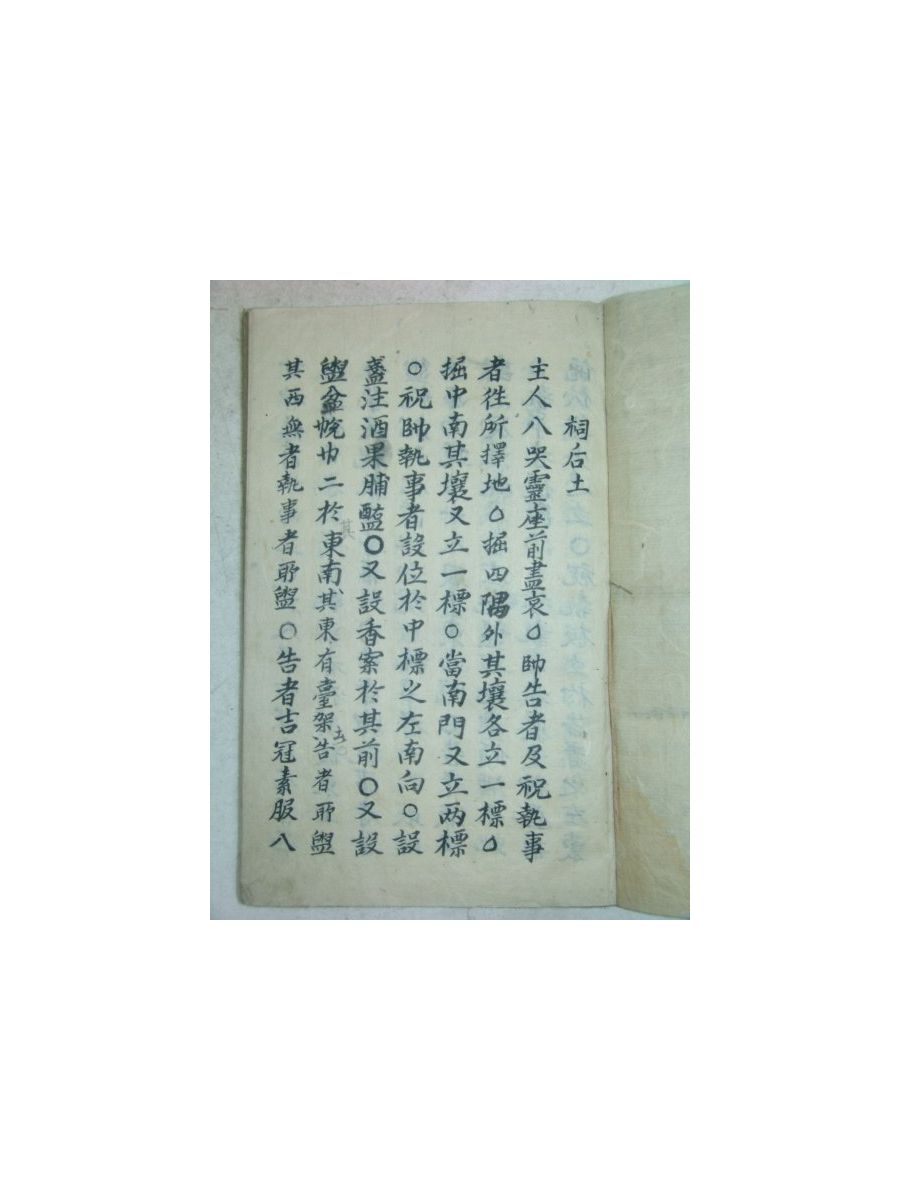 祠后土
主人入哭靈座前盡哀○帥告者及祝執事
者徃所擇地○掘四隅外其壤各立一標○
掘中南其壤又立一標○當南門又立两標
○祝帥執事者設位於中標之左南向○設
盞注酒果脯醢○又設香案於其前○又設
盥盆帨巾二於東南其東有臺架告者所盥
其西無者執事者所盥○告者吉冠素服入